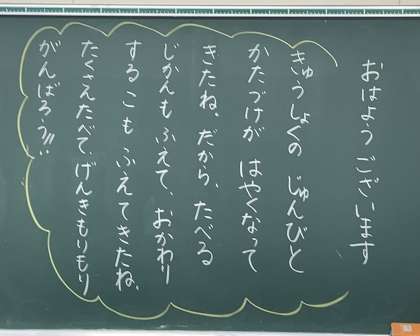 おはようございます
きゅうしょくの じゅんびと
かたづけが はやくなって
きたね。だから、たべる
じかんもふえて、おかわり
するこも ふえてきたね。
たくさんたべて、げんきもりもり
がんばろう!!